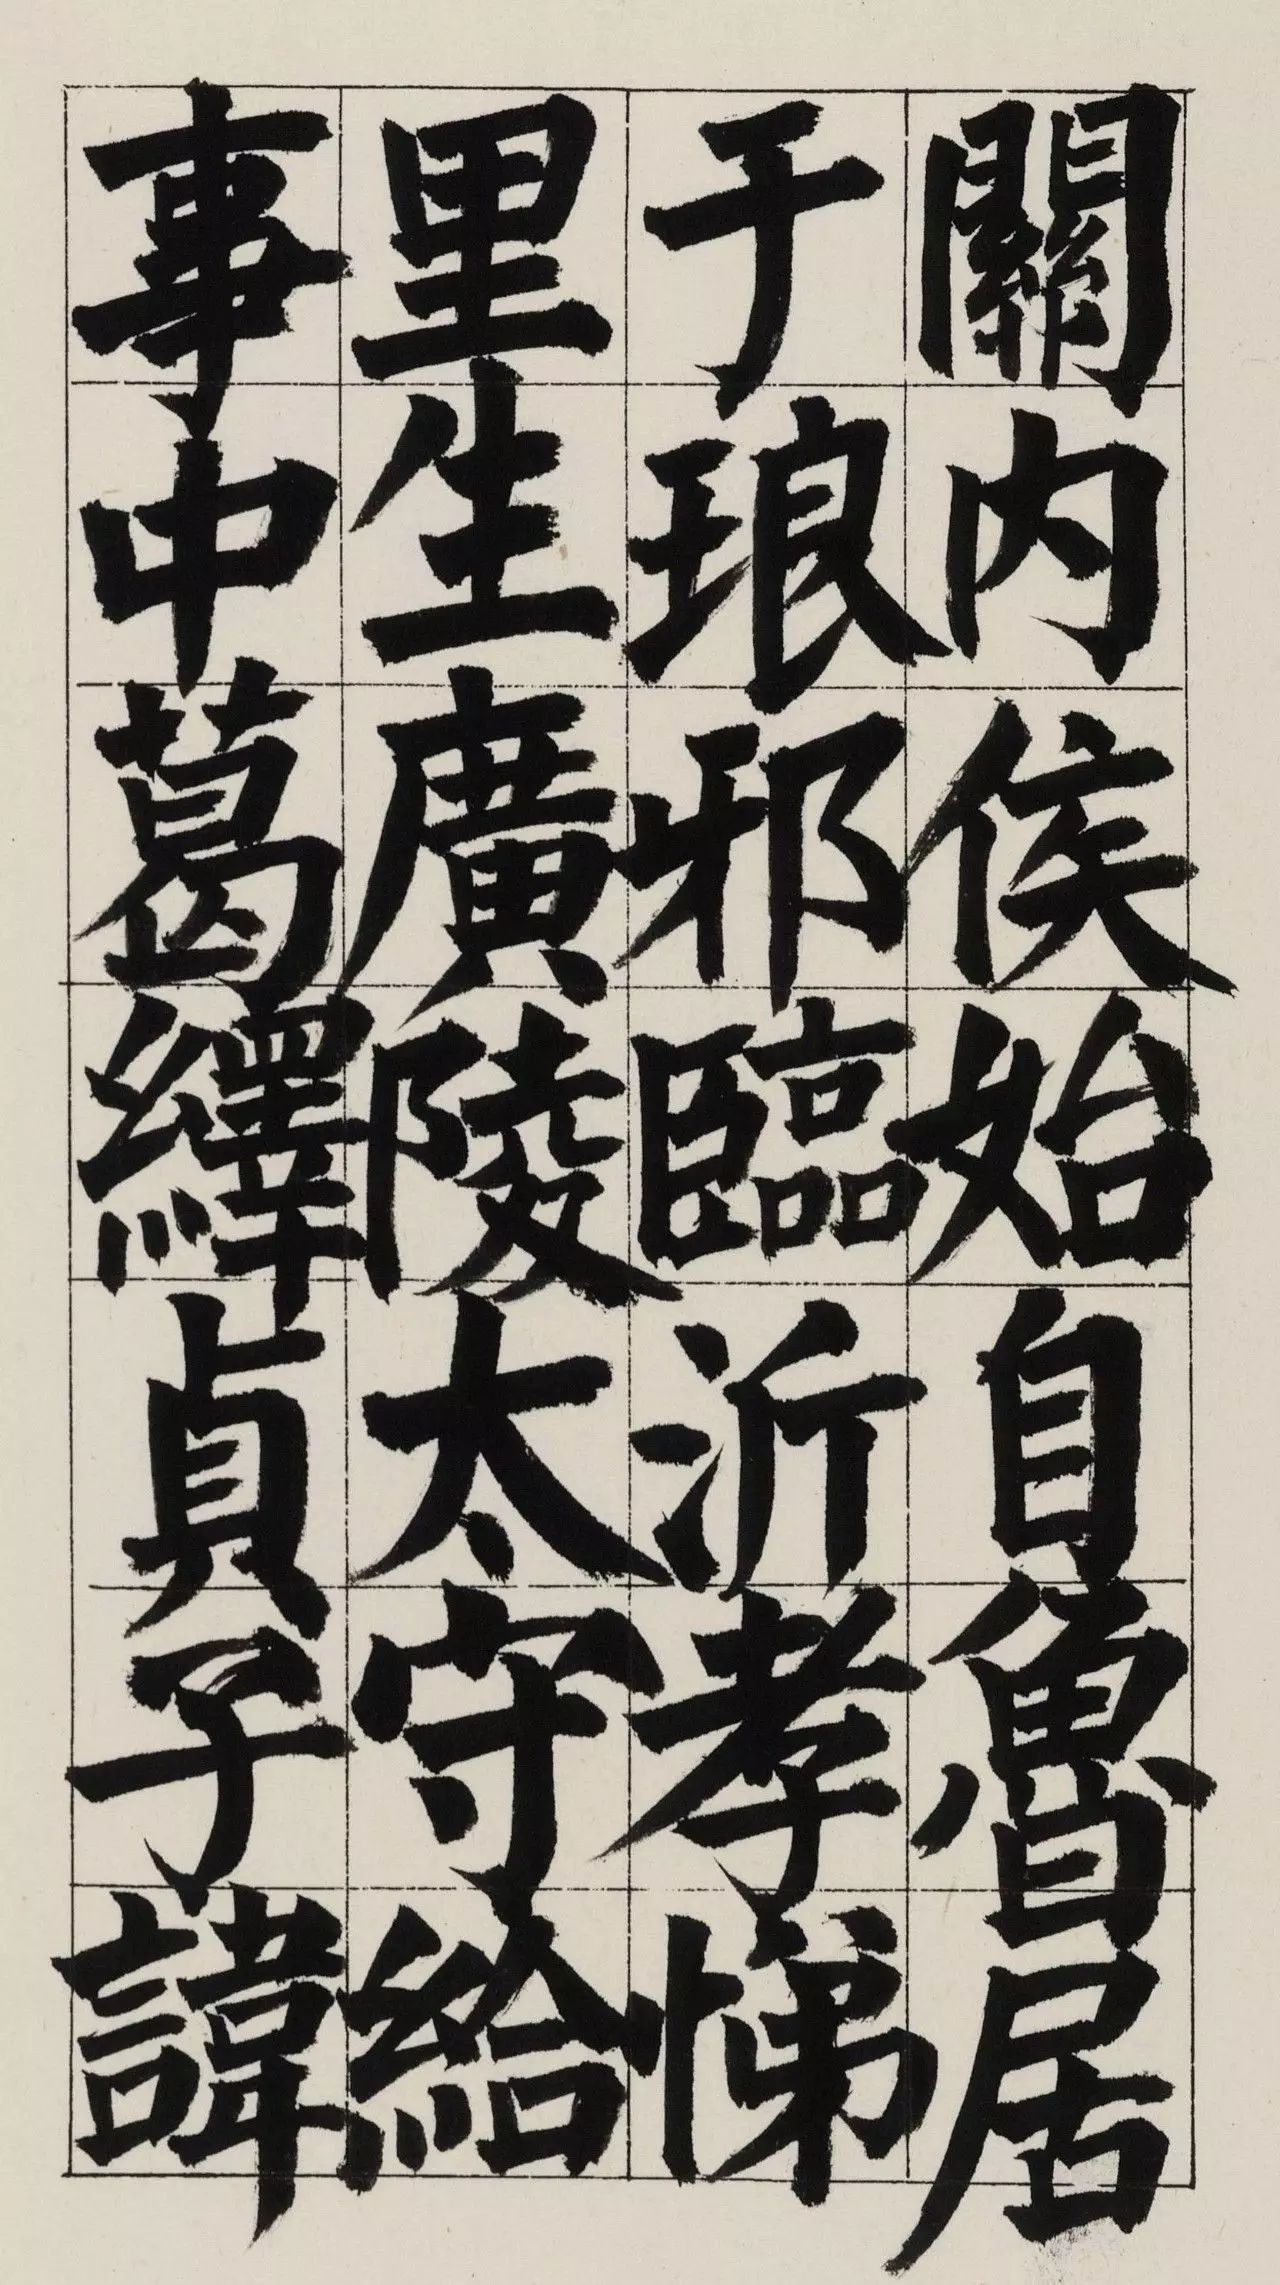 關内侯始自魯居
于琅邪臨沂孝悌
里生廣陵太守給
事中葛繹貞子諱